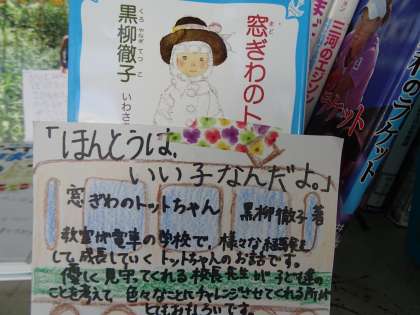 窓ぎわのト
まど
黒柳徹子
くろ やなぎ てつ こ
いわさ
三河のエジソン
ラケット
われのラケット
「ほんとうは、
いい子なんだよ。」
窓ぎわのトットちゃん 黒柳徹子 著
教室が電車の学校で、様々な経験を
して成長していくトットちゃんのお話です。
優しく見守ってくれる校長先生が子ども達の
ことを考えて色々なことにチャレンジさせてくれる所が
とてもおもしろいです。